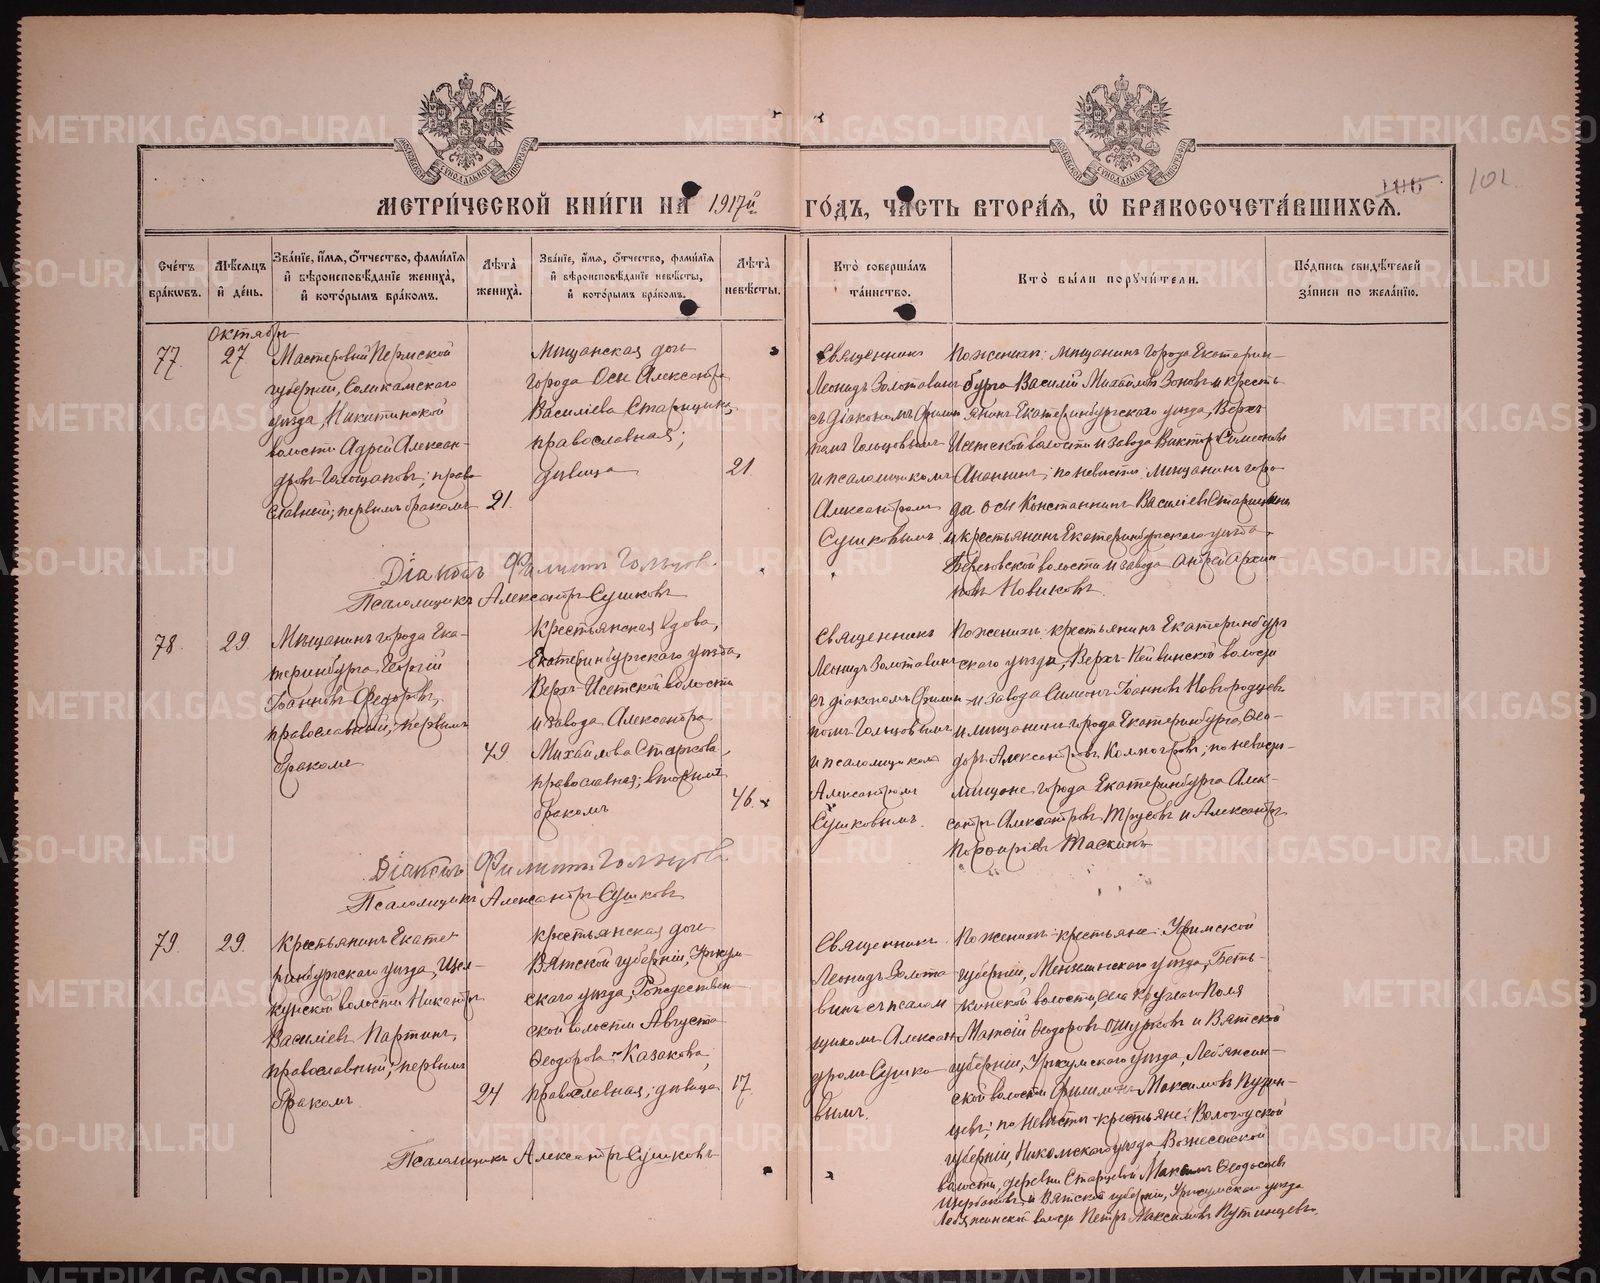 МЕТРИЧЕСКОЙ КНИГИ НА 1917й ГОДЪ, ЧАСТЬ ВТОРАЯ, Ѡ БРАКОСОЧЕТАВШИХСЯ.
101.
Счетъ браковъ.
Мѣсяцъ и день.
Званіе, имя, отчество, фамилія и вѣроисповѣданіе жениха, и которымъ бракомъ.
Лѣта жениха.
Званіе, имя, отчество, фамилія и вѣроисповѣданіе невѣсты, и которымъ бракомъ.
Лѣта невѣсты.
Кто совершалъ таинство.
Кто были поручители.
Подпись свидѣтелей записи по желанію.
Октябрь
77.
27
Мастеровый Пермской
губерніи, Соликамскаго
уѣзда, Никитинской
волости Александ-
ровъ Голощаповъ; право
славный; первымъ бракомъ
21.
Мѣщанская дочь
города Осы Александра
Василіева Старицына,
православная;
дѣвица
21
Священникъ
Леонидъ Золотавинъ
съ діакономъ Филип
помъ Гольцовымъ
и псаломщикомъ
Александромъ
Сушковымъ.
По женихѣ: мѣщанинъ города Екатерин-
бурга Василій Михайловъ Зоновъ и кресть-
янинъ Екатеринбургскаго уѣзда, Верхъ
Исетской волости и завода Викторъ Симеоновъ
Ананьинъ; по невѣстѣ: мѣщанинъ горо-
да Осы Константинъ Василіевъ Старицынъ
и крестьянинъ Екатеринбургскаго уѣзда,
Березовской волости и завода Андрей Архип
повъ Новиковъ.
Діаконъ Филиппъ Гольцовъ.
Псаломщикъ Александръ Сушковъ
78.
29.
Мѣщанинъ города Ека-
теринбурга Георгій
Іоанновъ Федоровъ,
православный; первымъ
бракомъ
49
Крестьянская вдова,
Екатеринбургскаго уѣзда,
Верхъ-Исетской волости
и завода Александра
Михайлова Старкова,
православная; вторымъ
бракомъ
46.
Священникъ
Леонидъ Золотавинъ
съ діакономъ Филип
помъ Гольцовымъ
и псаломщикомъ
Александромъ
Сушковымъ.
По женихѣ: крестьянинъ Екатеринбург
скаго уѣзда, Верхъ-Нейвинской волости
и завода Симеонъ Іоанновъ Новгородцевъ
и мѣщанинъ города Екатеринбурга, Ѳео-
доръ Александровъ; по невѣстѣ-
мѣщане города Екатеринбурга Алек-
сандръ Александровъ Трусовъ и Александръ
Порфиріевъ Таскинъ
Діаконъ Филиппъ Гольцовъ.
Псаломщикъ Александръ Сушковъ
79.
29.
Крестьянинъ Екате-
ринбургскаго уѣзда, Щел-
кунской волости Никандръ
Василіевъ Партинъ,
православный; первымъ
бракомъ
24
Крестьянская дочь
Вятской губерніи, Уржум-
скаго уѣзда, Рождествен-
ской волости Августа
Ѳеодорова Казакова,
православная; дѣвица
17.
Священникъ
Леонидъ Золота
винъ съ псалом
щикомъ Алексан
дромъ Сушко-
вымъ.
По женихѣ: крестьяне: Уфимской
губерніи, Мензелинскаго уѣзда,
волости, села Круглаго Поля
Матѳій Ѳеодоровъ Ошурковъ и Вятской
губерніи, Уржумскаго уѣзда,
ской волости Максимовъ
; по невѣстѣ - крестьяне: Вологодской
губерніи, Никольскаго уѣзда Вознесенской
волости, деревни Максимъ
и Вятской губерніи, Уржумскаго уѣзда
волости Петръ Максимовъ Путинцевъ.
Псаломщикъ Александръ Сушковъ
METRIKI.GASO-URAL.RU